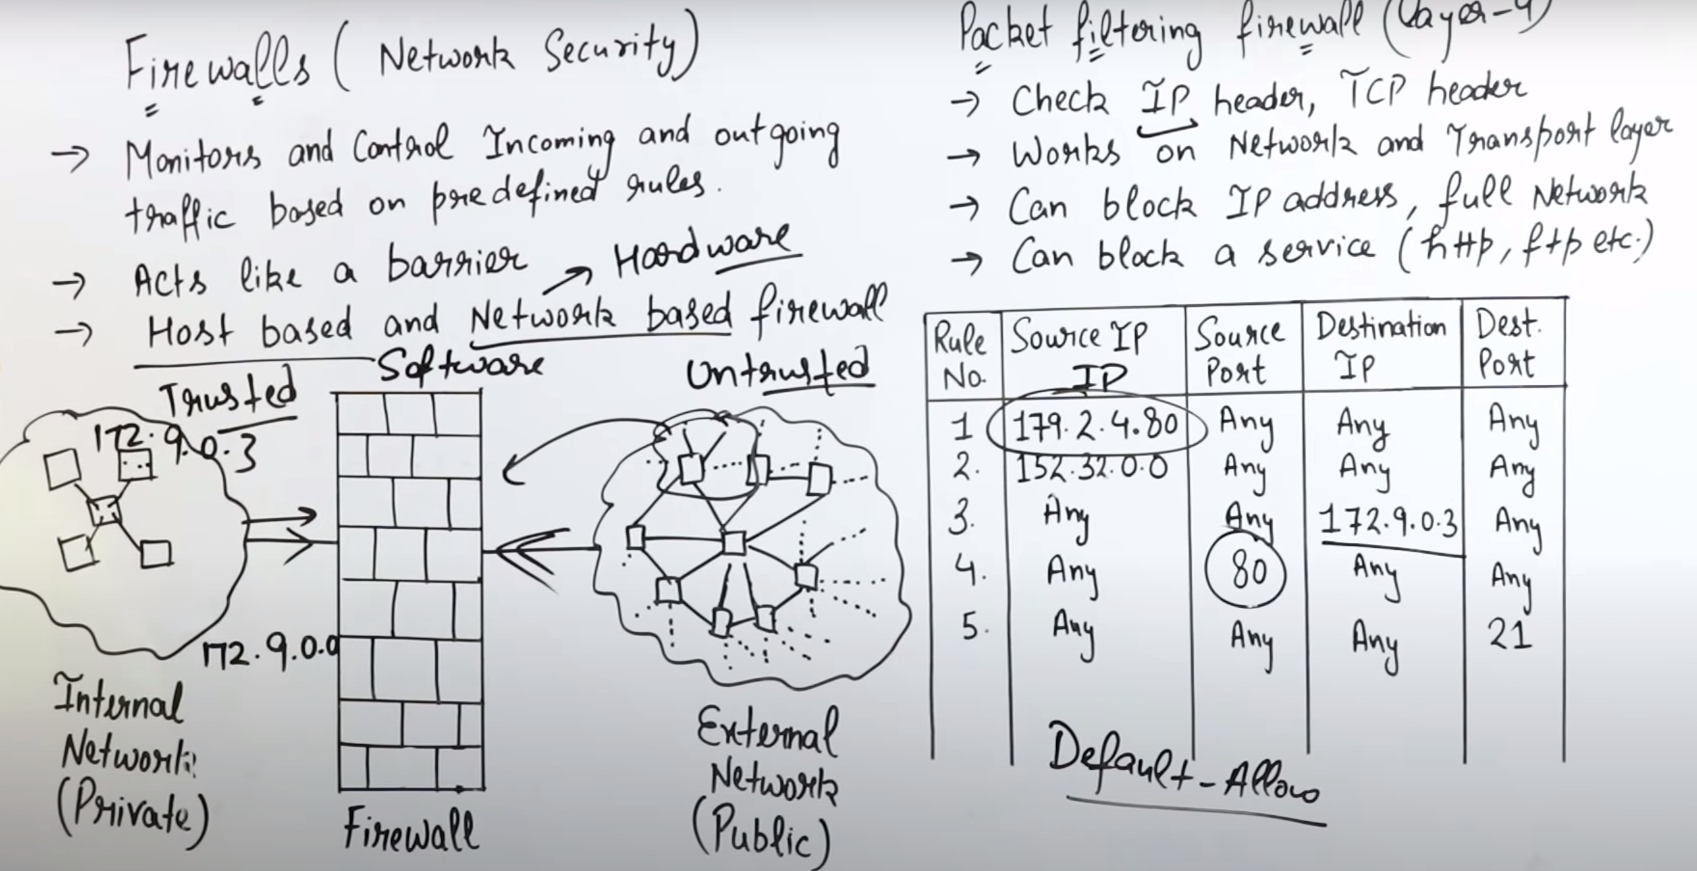 Firewalls ( Network Security)
→ Monitors and Control Incoming and outgoing
traffic based on predefined rules.
→ Acts like a barrier
→ Hardware
→ Host based and Network based firewall
Software
Trusted
Untrusted
172.9.0.3
172.9.0.0
Internal
Network
(Private)
Firewall
External
Network
(Public)
Packet filtering firewall (Layer-4)
→ Check IP header, TCP header
→ Works on Network and Transport layer
→ Can block IP address, full Network
→ Can block a service (http, ftp etc.)
Rule No. Source IP IP Source Port Destination IP Dest. Port
1 179.2.4.80 Any Any Any
2. 152.32.0.0 Any Any Any
3. Any Any 172.9.0.3 Any
4. Any 80 Any Any
5. Any Any Any 21
Default-Allow